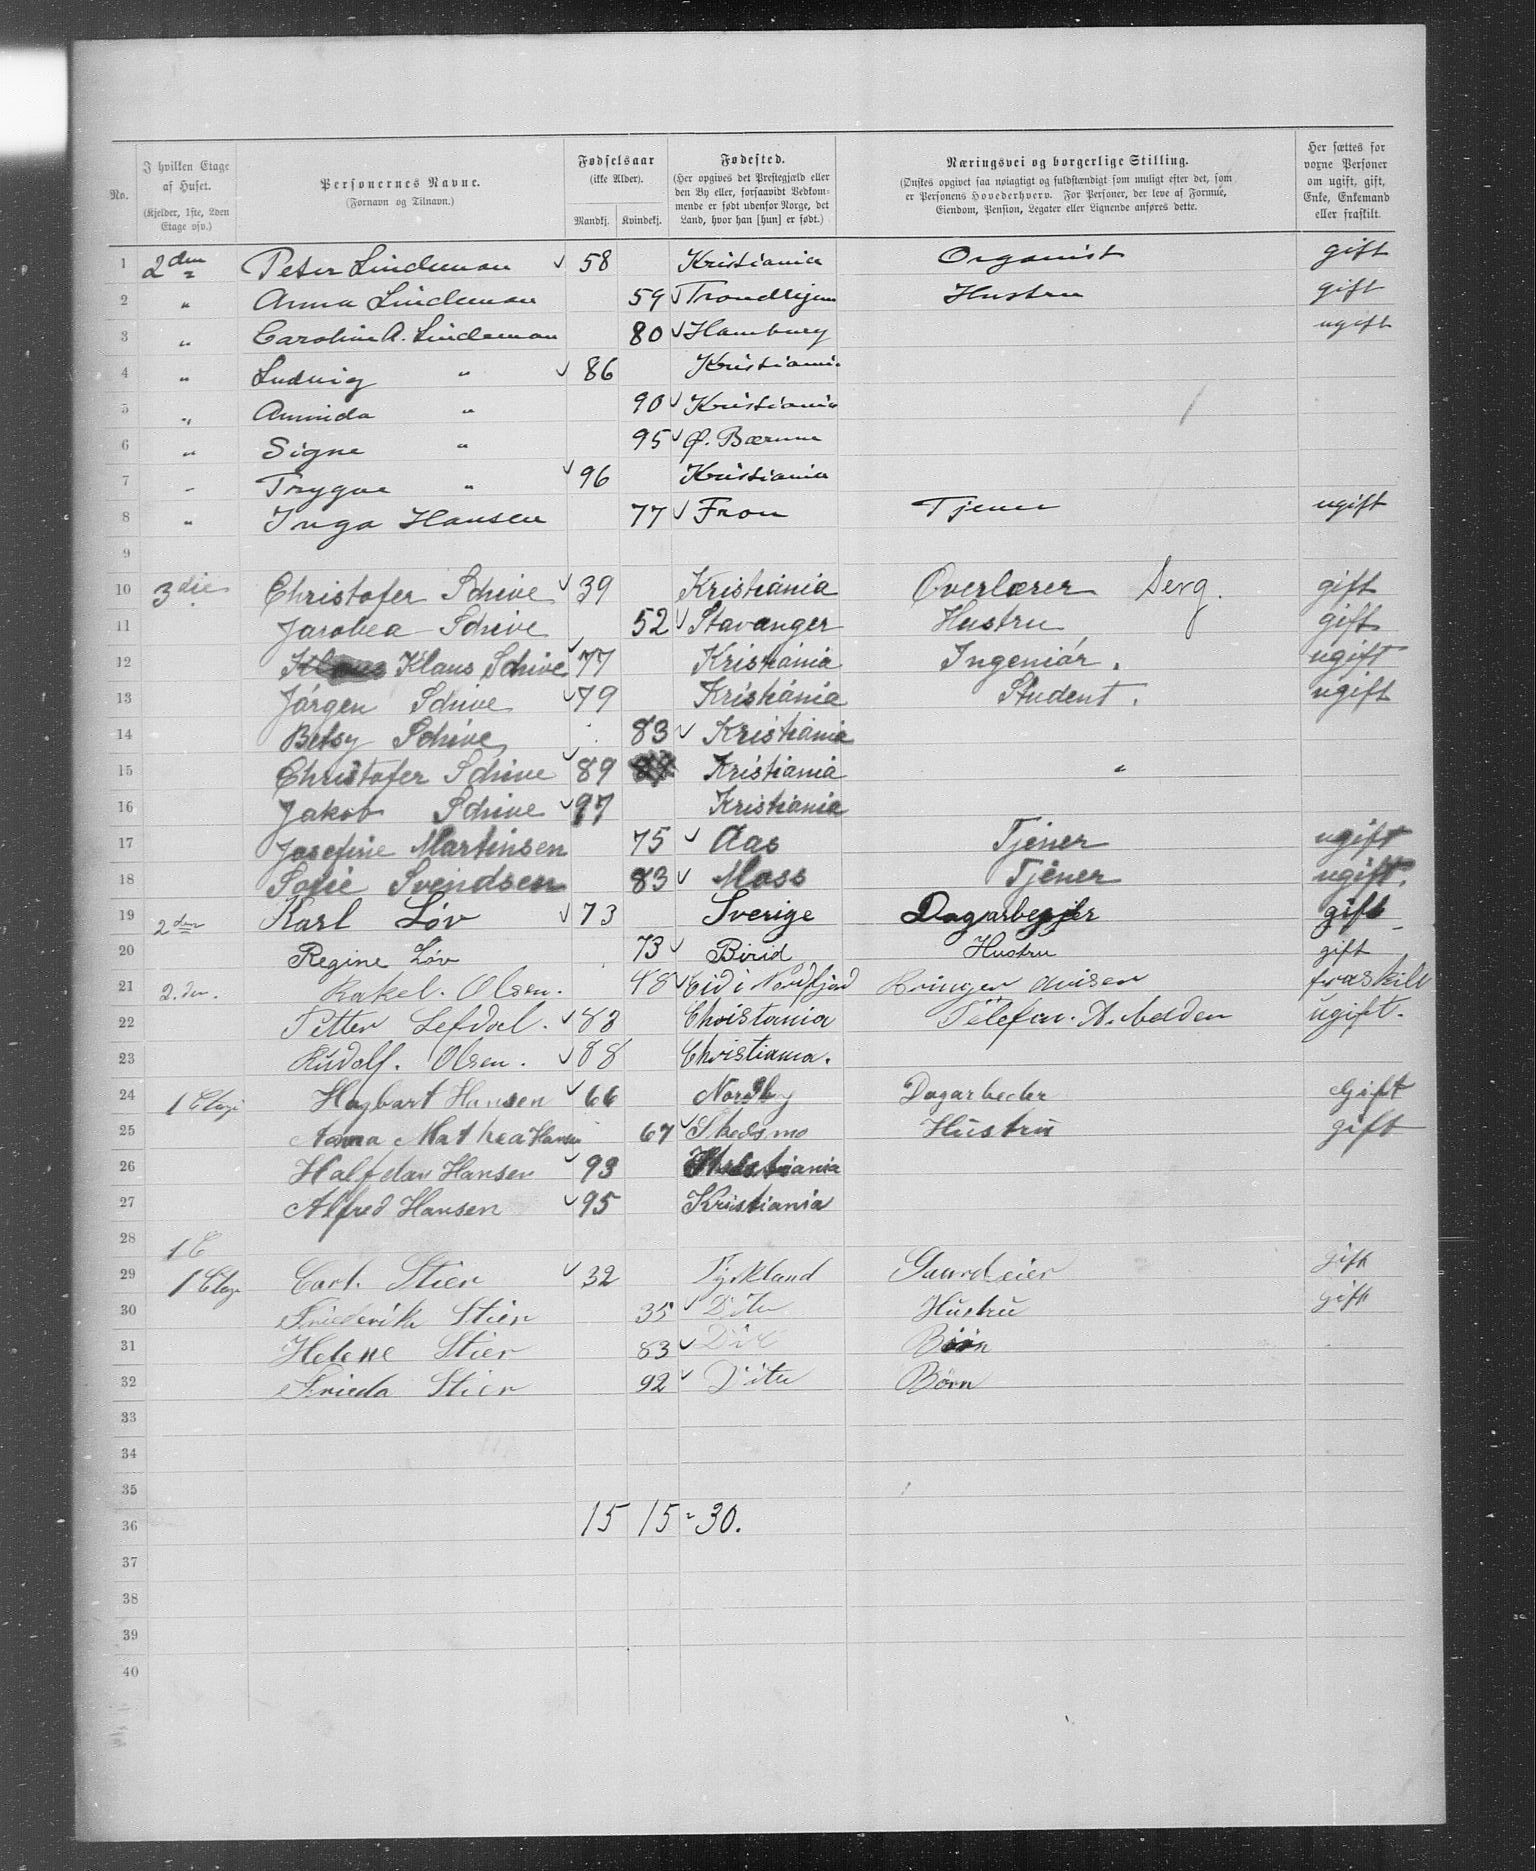 No.
I hvilken Etage af Huset. (Kjelder, 1ste, 2den Etage osv.)
Personernes Navne. (Fornavn og Tilnavn.)
Fødselsaar (ikke Alder).
Mandkj. Kvindekj.
Fødested. (Her opgives det Prestegjæld eller den By eller, forsaavidt Vedkommende er født udenfor Norge, det Land, hvor han [hun] er født.)
Næringsvei og borgerlige Stilling. (Ønskes opgivet saa nøiagtigt og fuldstændigt som muligt efter det, som er Personens Hovederhverv. For Personer, der leve af Formue, Eiendom, Pension, Legater eller Lignende anføres dette.
Her sættes for voxne Personer om ugift, gift, Enke, Enkemand eller fraskilt.
1 2den Peter Lindeman 58 Kristiania Organist gift
2 " Anna Lindeman 59 Trondhjem Hustru gift
3 " Caroline A. Lindeman 80 Hamburg ugift
4 " Ludvig " 86 Kristiania
5 " Aminda " 90 Kristiania
6 " Signe " 95 Ø. Bærum
7 " Trygve " 96 Kristiania
8 " Inga Hansen 77 Fron Tjener ugift
9
10 3die Christofer Schive 39 Kristiania Overlærer Serg. gift
11 Jacobea Schive 52 Stavanger Hustru gift
12 Klaus Schive 77 Kristiania Ingeniør. ugift
13 Jørgen Schive 79 Kristiania Student. ugift
14 Betsy Schive 83 Kristiania
15 Christofer Schive 89 Kristiania "
16 Jakob Schive 97 Kristiania
17 Josefine Martinsen 75 Aas Tjener ugift
18 Sofie Svendsen 83 Moss Tjener ugift.
19 2den Karl Løv 73 Sverige Dagarbejder gift
20 Regine Løv 73 Birid Hustru gift
21 2.den. Rakel. Olsen. 48 Eid i Nordfjord Bringer Aviser fraskilt
22 Petter Lefdal. 83 Christania Telefon. Arbeider ugift.
23 Rudolf. Olsen. 88 Christiania.
24 1 Etage Hagbart Hansen 66 Nordby Dagarbeder Gift
25 Anna Mathea Hansen 67 Skedsmo Hustru gift
26 Halfdan Hansen 93 Kristiania
27 Alfred Hansen 95 Kristiania
28 1 E
29 1 Etage Carl. Stier 32 Tyskland Gaardeier gift
30 Friederike Stier 35 Dito Hustru gift
31 Helene Stier 83 Dito Børn
32 Frieda Stier 92 Dito Børn
33
34
35
36 15 15 = 30.
37
38
39
40